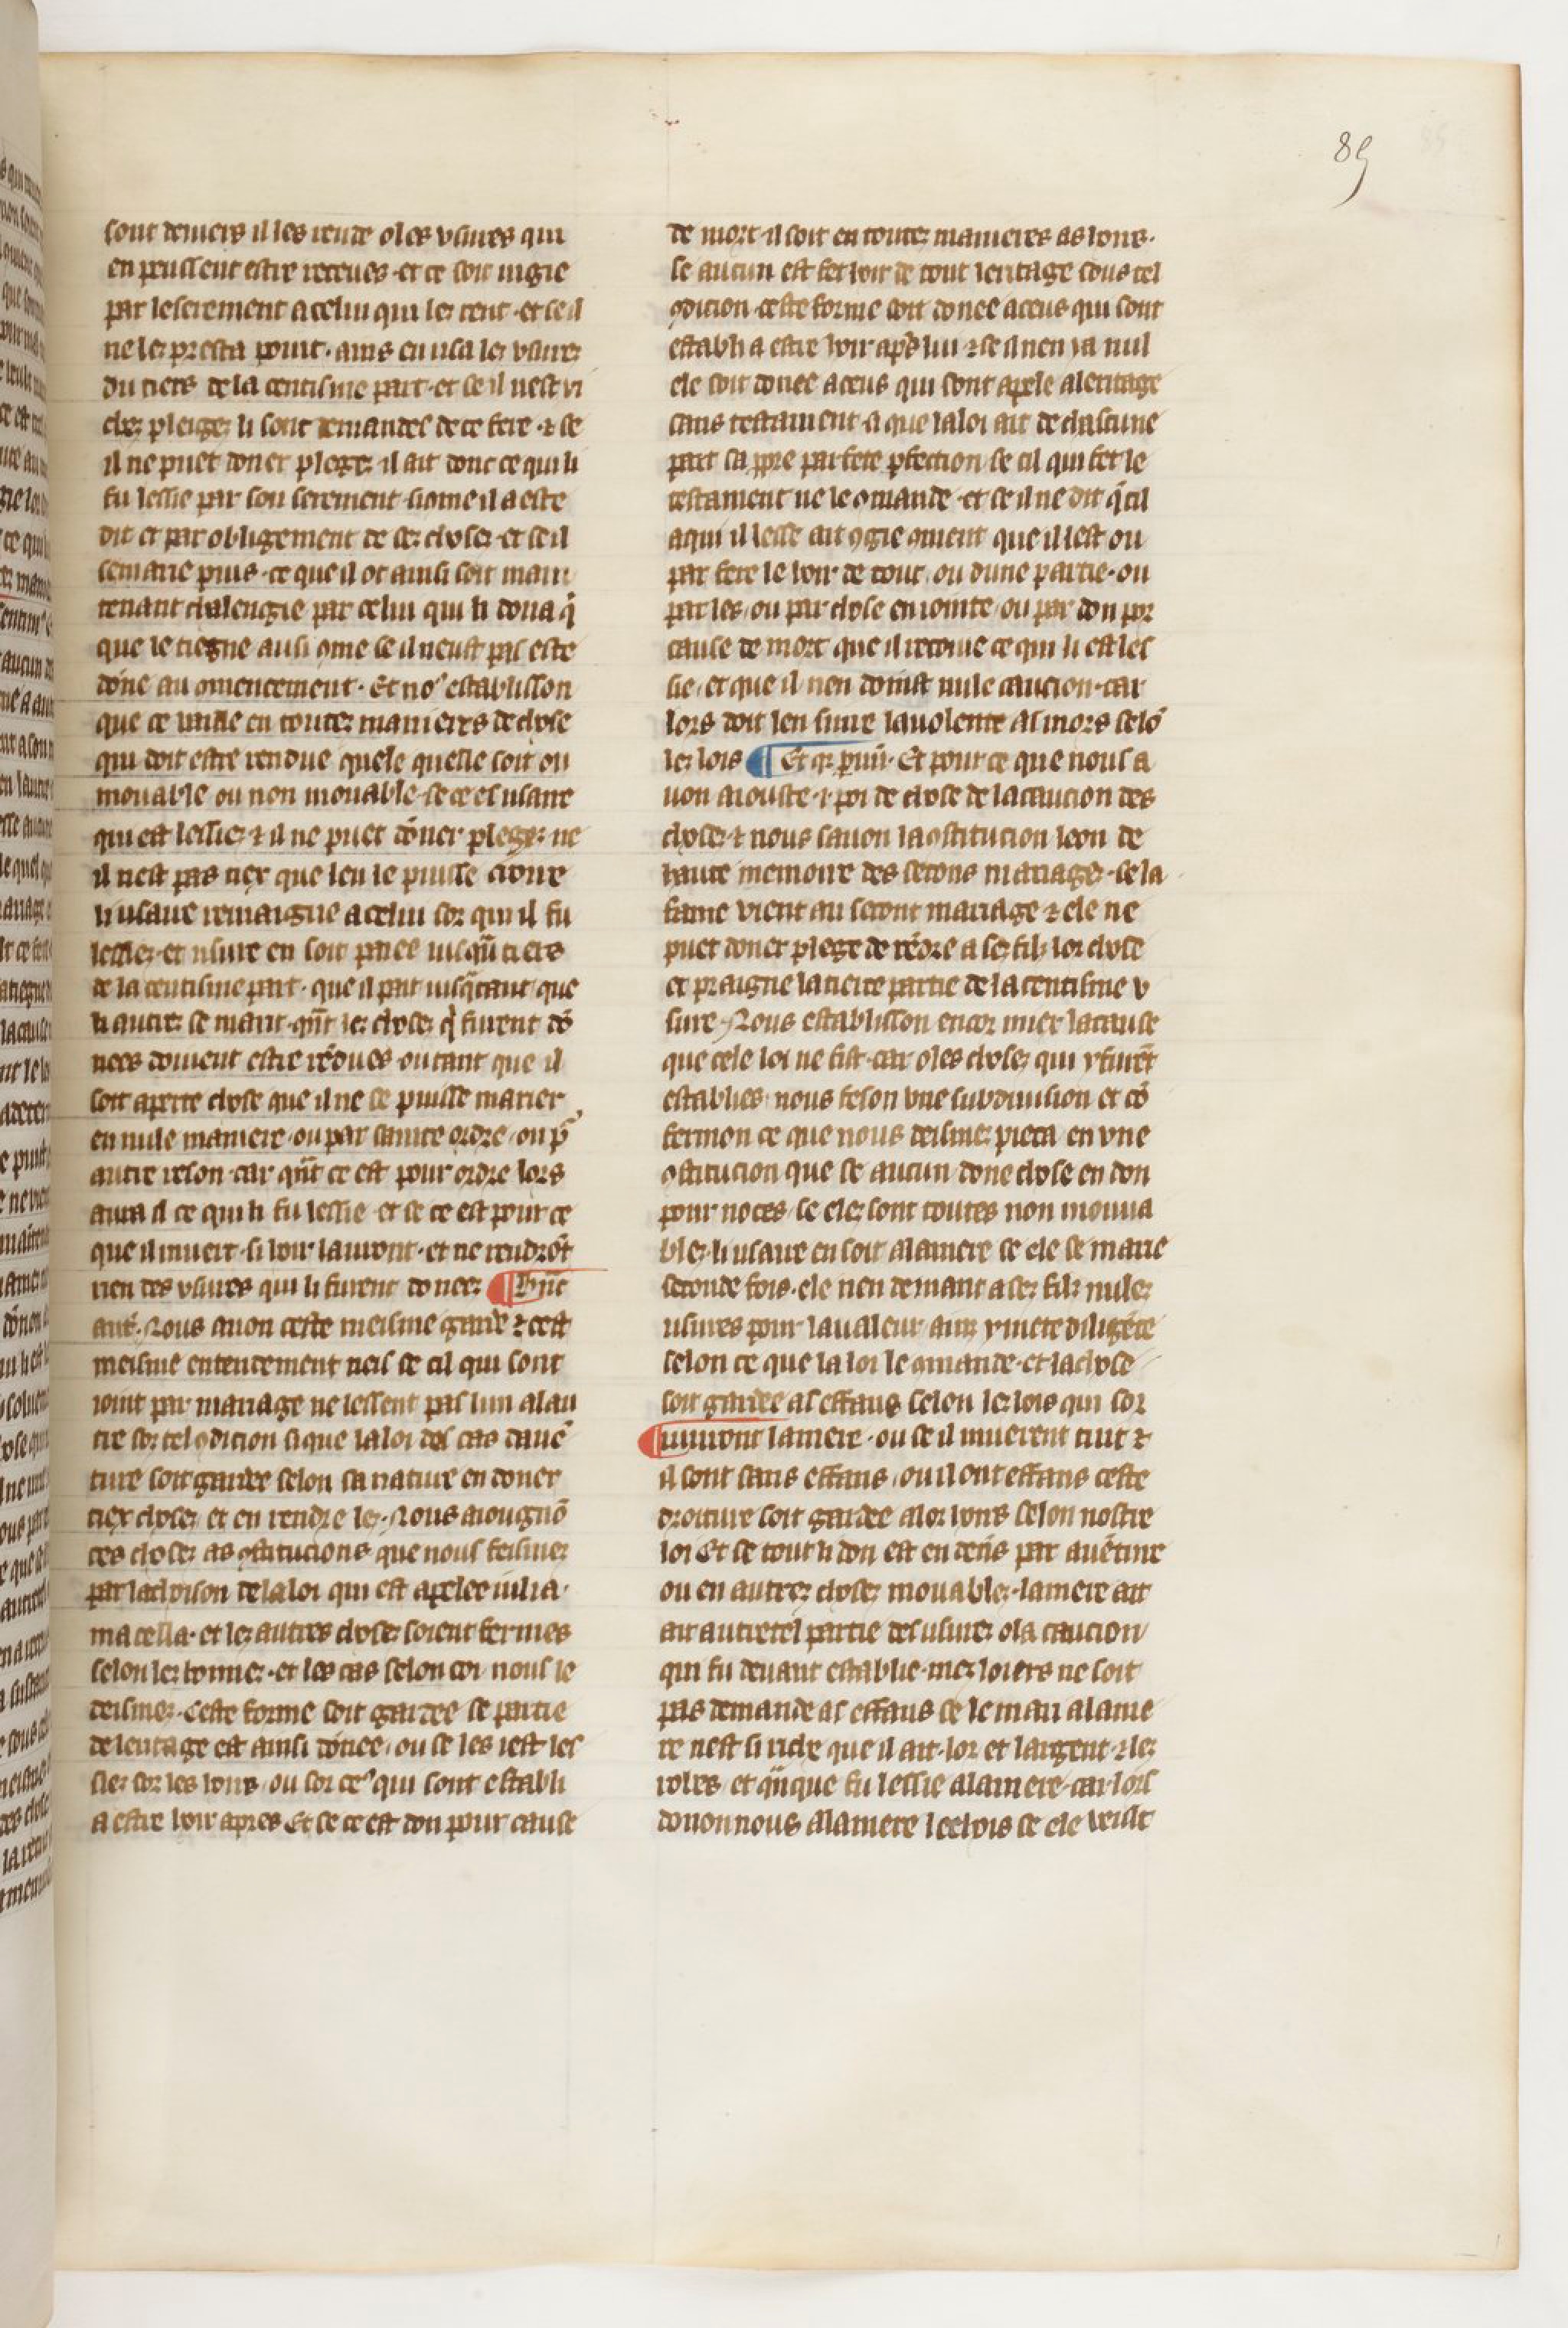 85
sont deniers il les rende o les usures qui
en peussent estre receues · et ce soit iugie
par le serement a celui qui les rent · et se il
ne les presta point · ains en usa les usures
du tiers de la centisme part · et se il nest ri
ches pleiges li sont demandes de ce fere · ⁊ se
il ne puet doner pleges il ait donc ce qui li
fu lessie par son serement · si ꝯme il a este
dit et par obligement de ses choses · et se il
se marie puis · ce que il ot ainsi soit main
tenant chalengie par celui qui li dona q̄
que le tiegne ausi ꝯme se il neust pas este
done au ꝯmencement · Et noꝰ establisson
que ce vaille en toutes manieres de chose
qui doit estre rendue quele quelle soit ou
mouable ou non mouable · se ce est usare
qui est lessiez ⁊ il ne puet doner pleges ne
il nest pas tiex que len le puisse croire
li usaire remaigne a celui sor qui il fu
lessiez · et usure en soit paiee iusquau tiers
de la centisme part · que il pait iusq̄tant que
li autres se marit · qn̄t les choses q̄ furent do
nees doiuent estre rēdues · ou tant que il
soit aperte chose que il ne se puisse marier
en nule maniere · ou par sainte ordre · ou p̄
autre reson · car qn̄t ce est pour ordre lors
aura il ce qui li fu lessie · et se ce est pour ce
que il muert · si hoir lauront · et ne rendrōt
rien des usures qui li furent donees ¶ hūc
aut̄ · Nous auon ceste meisme garde ⁊ cest
meisme entencement neis se cil qui sont
ioint par mariage ne lessent pas lun a lau
tre sor tel ꝯdicion si que la loi des cas dauē
ture soit gardee selon sa nature en doner
tiex choses et en rendre les · Nous aiougnō
ces choses as ꝯstitucions que nous feismes
par lachoison de la loi qui est apelee iulia ·
macella · et les autres choses soient fermes
selon les bonnes · et les cas selon coi nous le
deismes · Ceste forme soit gardee se partie
de leritage est ainsi donee · ou se les iest les
siez sor les hoirs · ou sor ceꝰ qui sont establi
a estre hoir apres Et se ce est don pour cause
de mort · il soit en toutes manieres as hoirs ·
se aucun est fet hoir de tout leritage sous tel
ꝯdicion · ceste forme soit donee a ceus qui sont
establi a estre hoir apꝰs lui ⁊ se il nen i a nul
ele soit donee a ceus qui sont apele a leritage
sans testament · si que la loi ait de chascune
part sa ppre parfete pfection se cil qui fet le
testament ne le ꝯmande · et se il ne dit q̄ cil
a qui il lesse ait ꝯgie ꝯment que il lest ou
par fere le hoir de tout · ou dune partie · ou
par les · ou par chose enioint · ou par don por
cause de mort que il recoiue ce qui li est les
sie · et que il nen doinst nule caucion · car
lors doit len siure la uolente as mors selō
les lois ¶ Et qr̄ pūi · Et pour ce que nous a
uon aiouste · ⁊ poi de chose de la caucion des
choses ⁊ nous sauon la ꝯstitucion leon de
haute memoire des secons mariages · se la
fame vient au secont mariage ⁊ ele ne
puet doner plege de rēdre a ses filz lor chose
et praigne la tierce partie de la centisme v
sure · Nous establisson encor miex la cause
que cele loi ne fist · car o les choses qui y furēt
establies · nous feson vne subdiuision et cō
fermon ce que nous deismes pieca en vne
ꝯstitucion que se aucun done chose en don
pour noces · se eles sont toutes non mouua
bles · li usaire en soit a la mere se ele se marie
seconde fois · ele nen demant a ses filz nules
usures pour la ualeur · ainz y mete diligēce
selon ce que la loi le ꝯmande · et la chose
soit gardee as effans selon les lois qui sor
uiuront la mere · ou se il muerent tuit ⁊
il sont sans effans · ou il ont effans ceste
droiture soit gardee a lor hoirs selon nostre
loi Et se tout li don est en den̄s par auēture
ou en autres choses mouables · la mere ait
ait autretel partie des usures o la caucion
qui fu deuant establie · mes loiers ne soit
pas demande as effans se le mari a la me
re nest si riche que il ait · lor et largent · ⁊ les
robes · et qn̄que fu lessie a la mere · car lors
donon nous a la mere le chois se ele veult